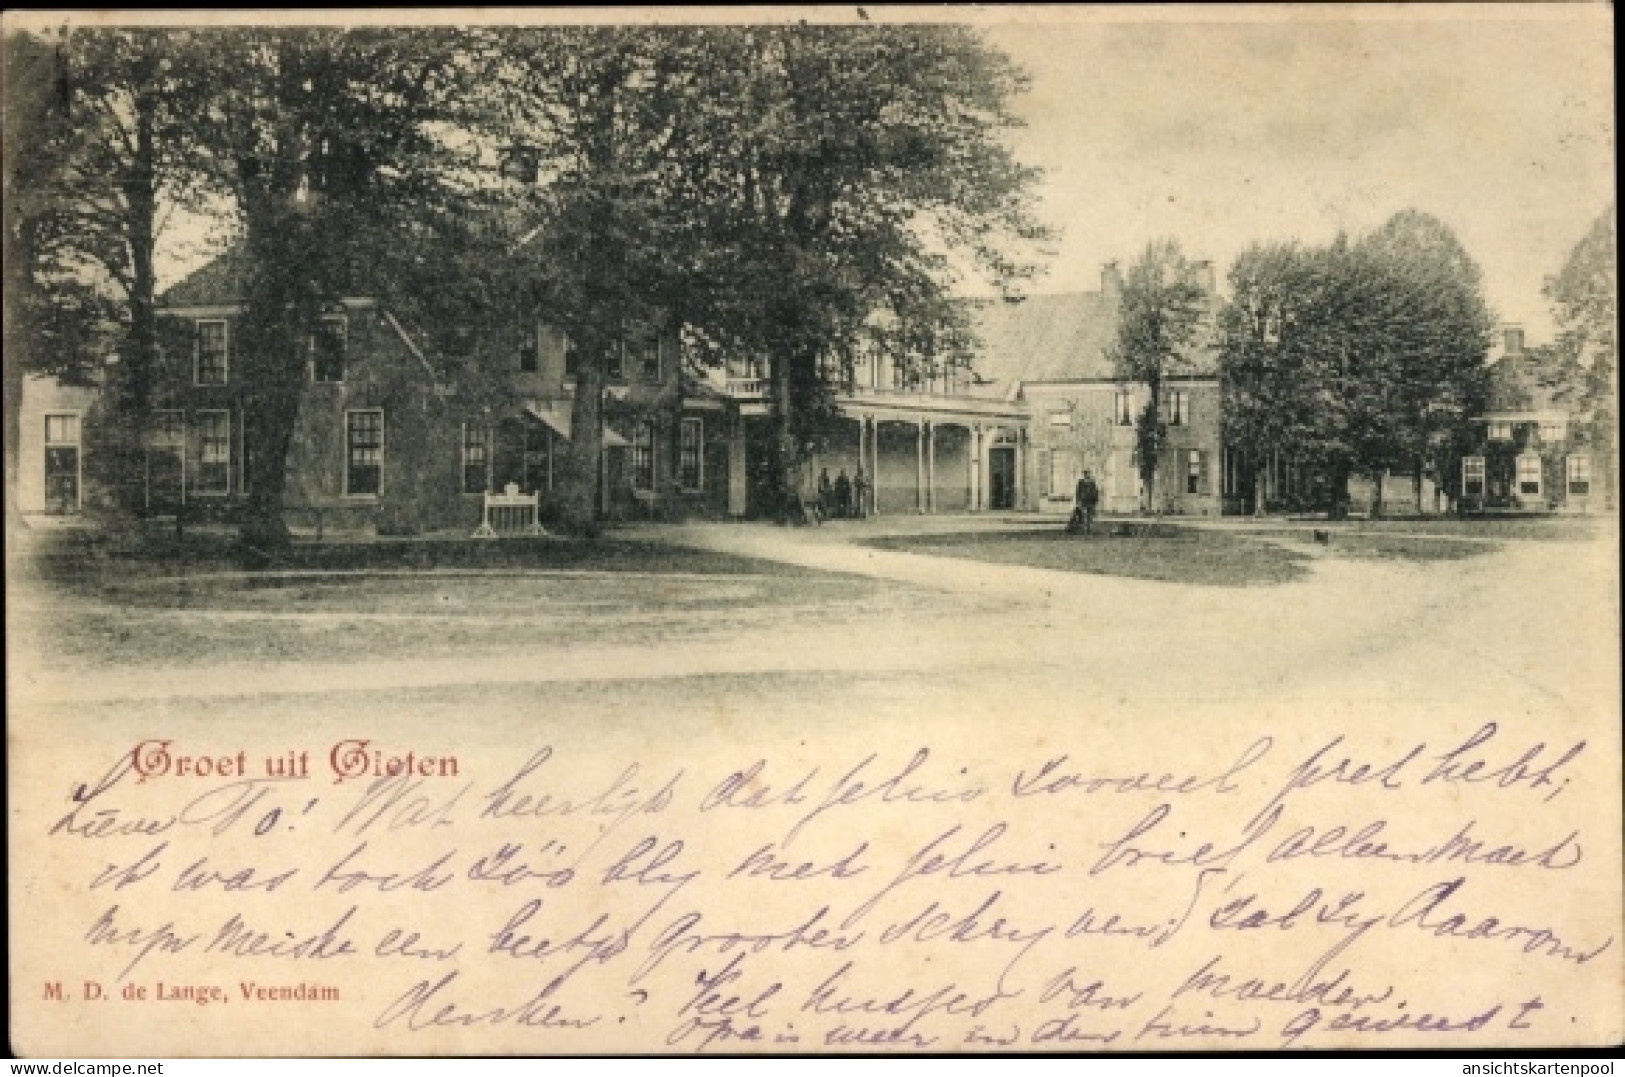 Groet uit Gieten
Lieve To! Wat heerlijk dat jelui zooveel pret hebt;
ik was toch zóó bly met jelui brief, alleen moet
mijn meiske een beetje grooter schryven; zal zy daarom
denken? Veel kusjes van moeder.
opa is weer in den tuin geweest.
M. D. de Lange, Veendam
delcampe.net
ansichtskartenpool